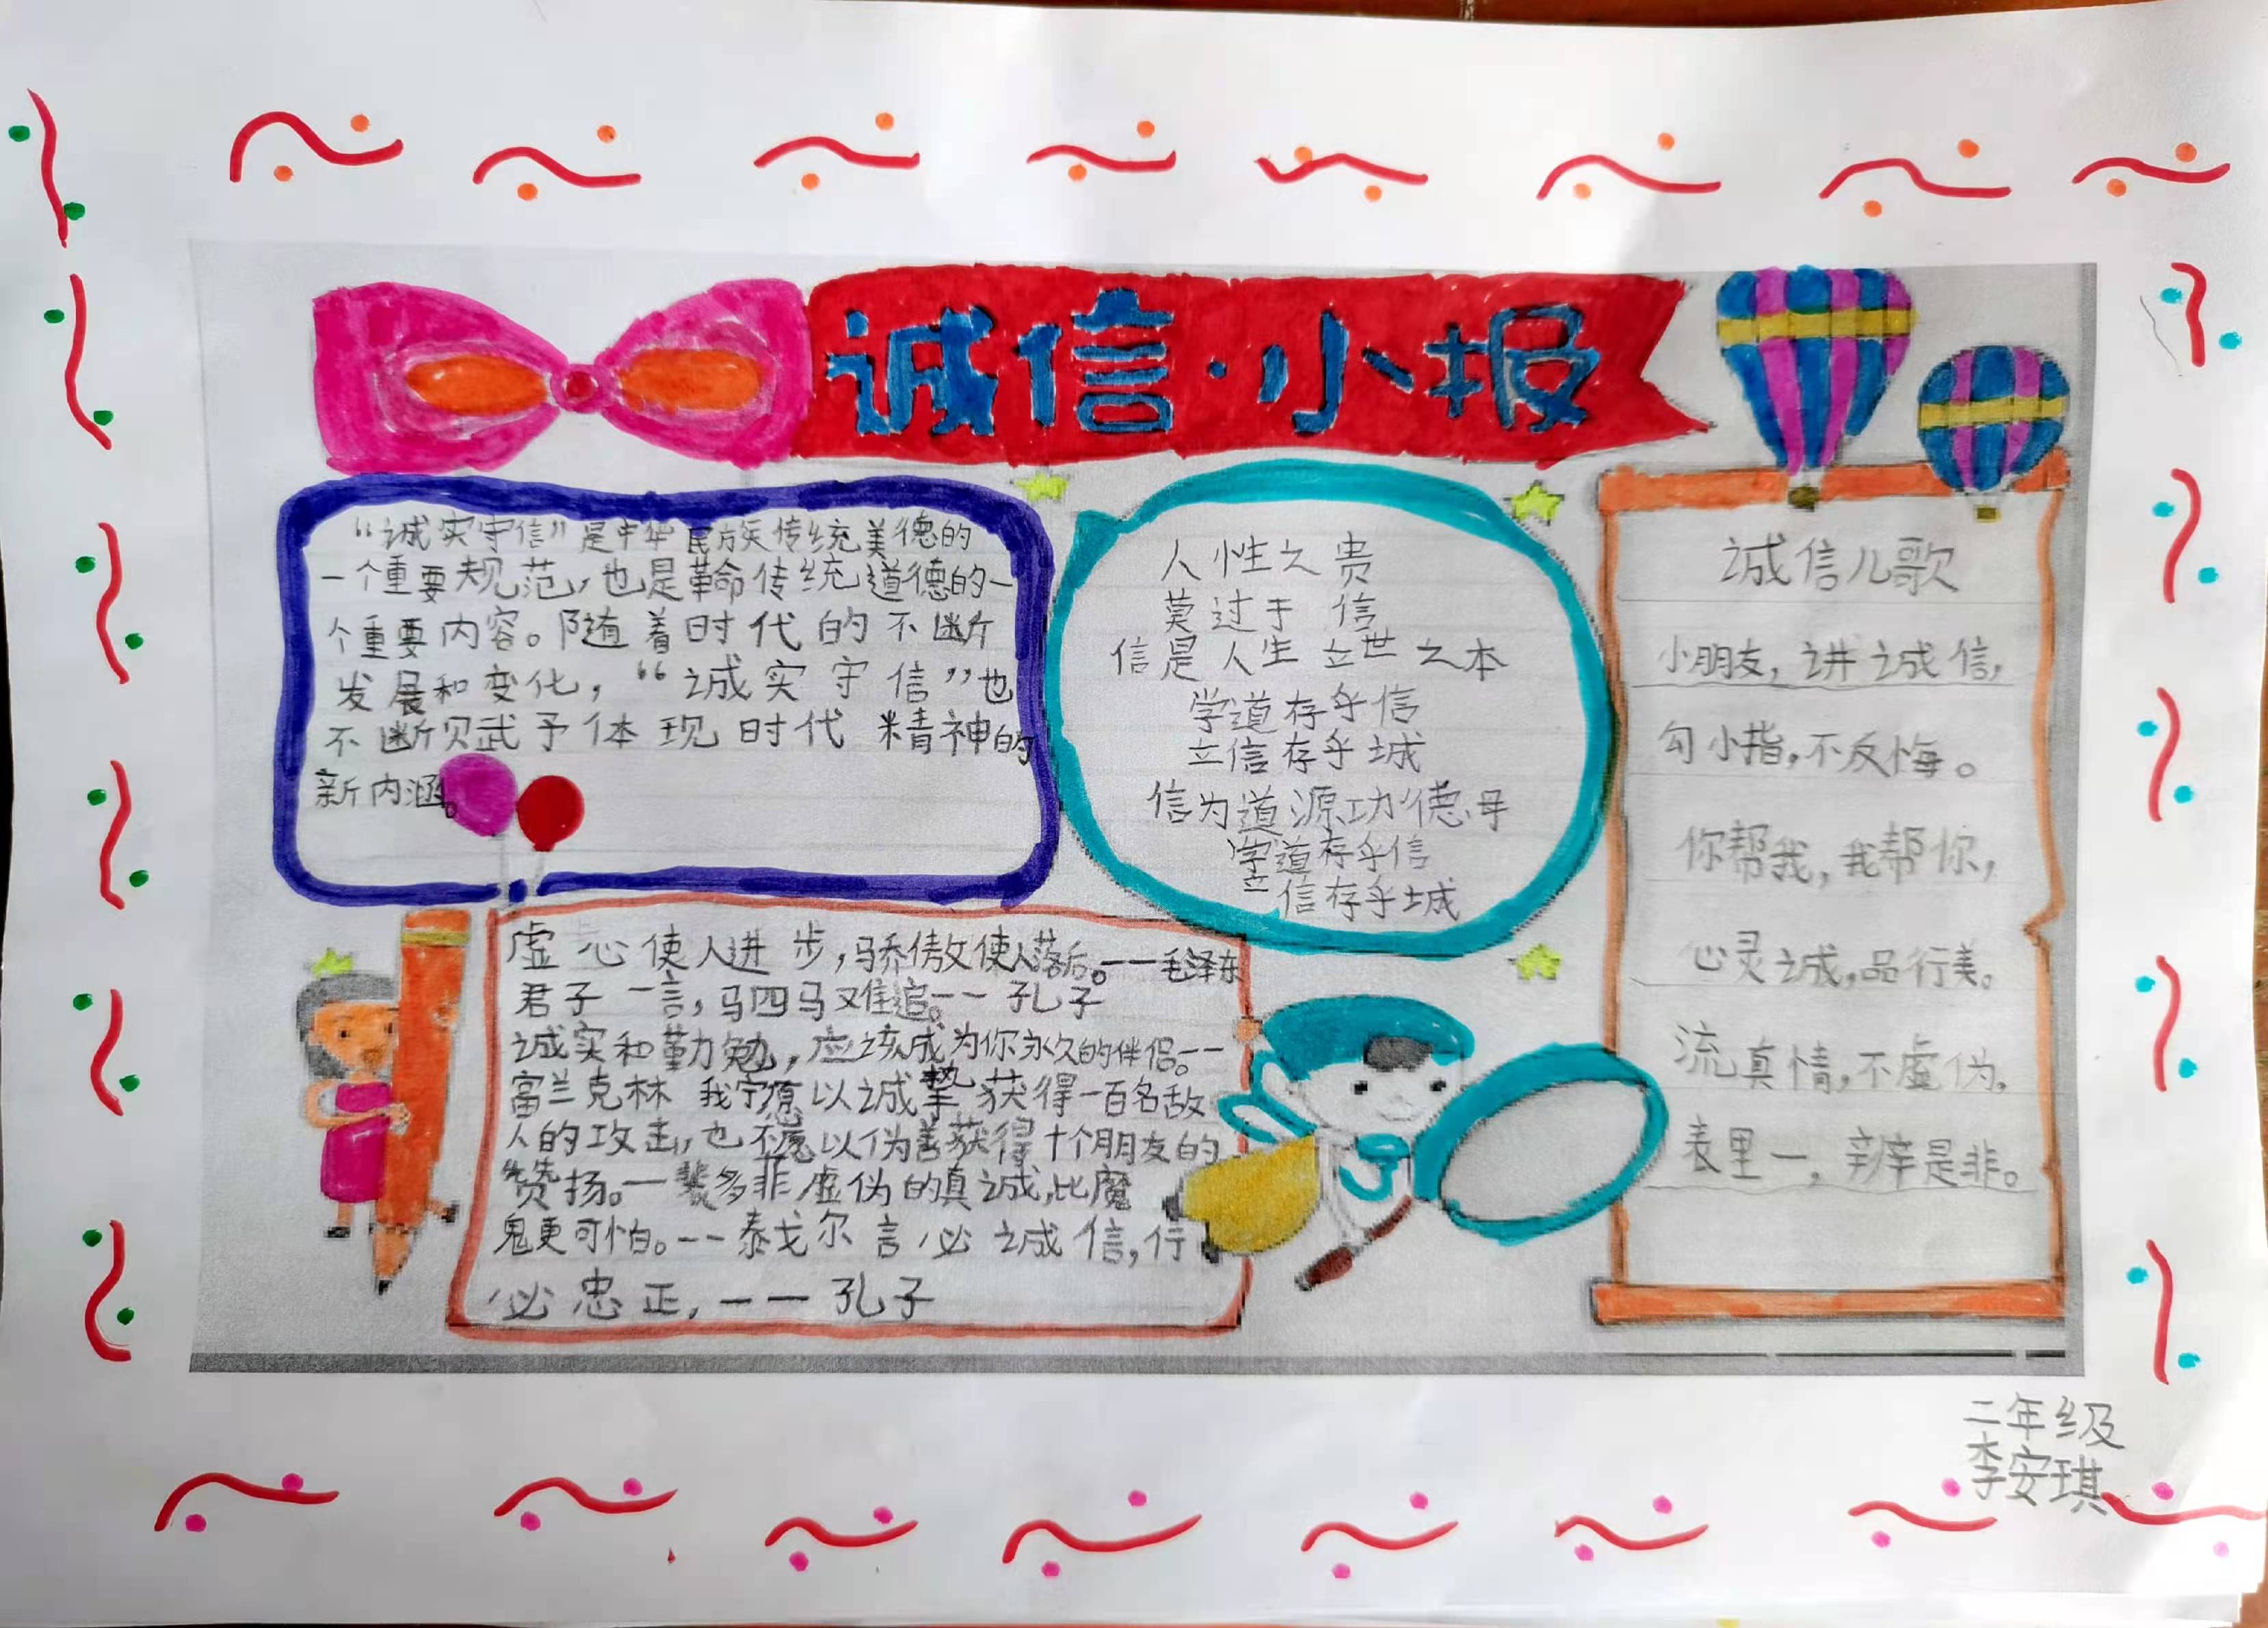 诚信·小报
“诚实守信”是中华民族传统美德的
一个重要规范,也是革命传统道德的一
个重要内容。随着时代的不断
发展和变化,“诚实守信”也
不断贝武予体现时代精神的
新内涵。
人性之贵
莫过于 信
信是人生立世之本
学道存乎信
立信存乎城
信为道源功德母
学道存乎信
立信存乎城
虚心使人进步,骄傲使人落后。——毛泽东
君子一言,马四马又难追。——孔子
诚实和勤勉,应该成为你永久的伴侣。——
富兰克林 我宁愿以诚挚获得一百名敌
人的攻击,也不愿以伪善获得十个朋友的
赞扬。—裴多菲 虚伪的真诚,比魔
鬼更可怕。——泰戈尔 言必诚信,行
必忠正,——孔子
诚信儿歌
小朋友,讲诚信,
勾小指,不反悔。
你帮我,我帮你,
心灵诚,品行美。
流真情,不虚伪,
表里一,辨是非。
二年级
李安琪